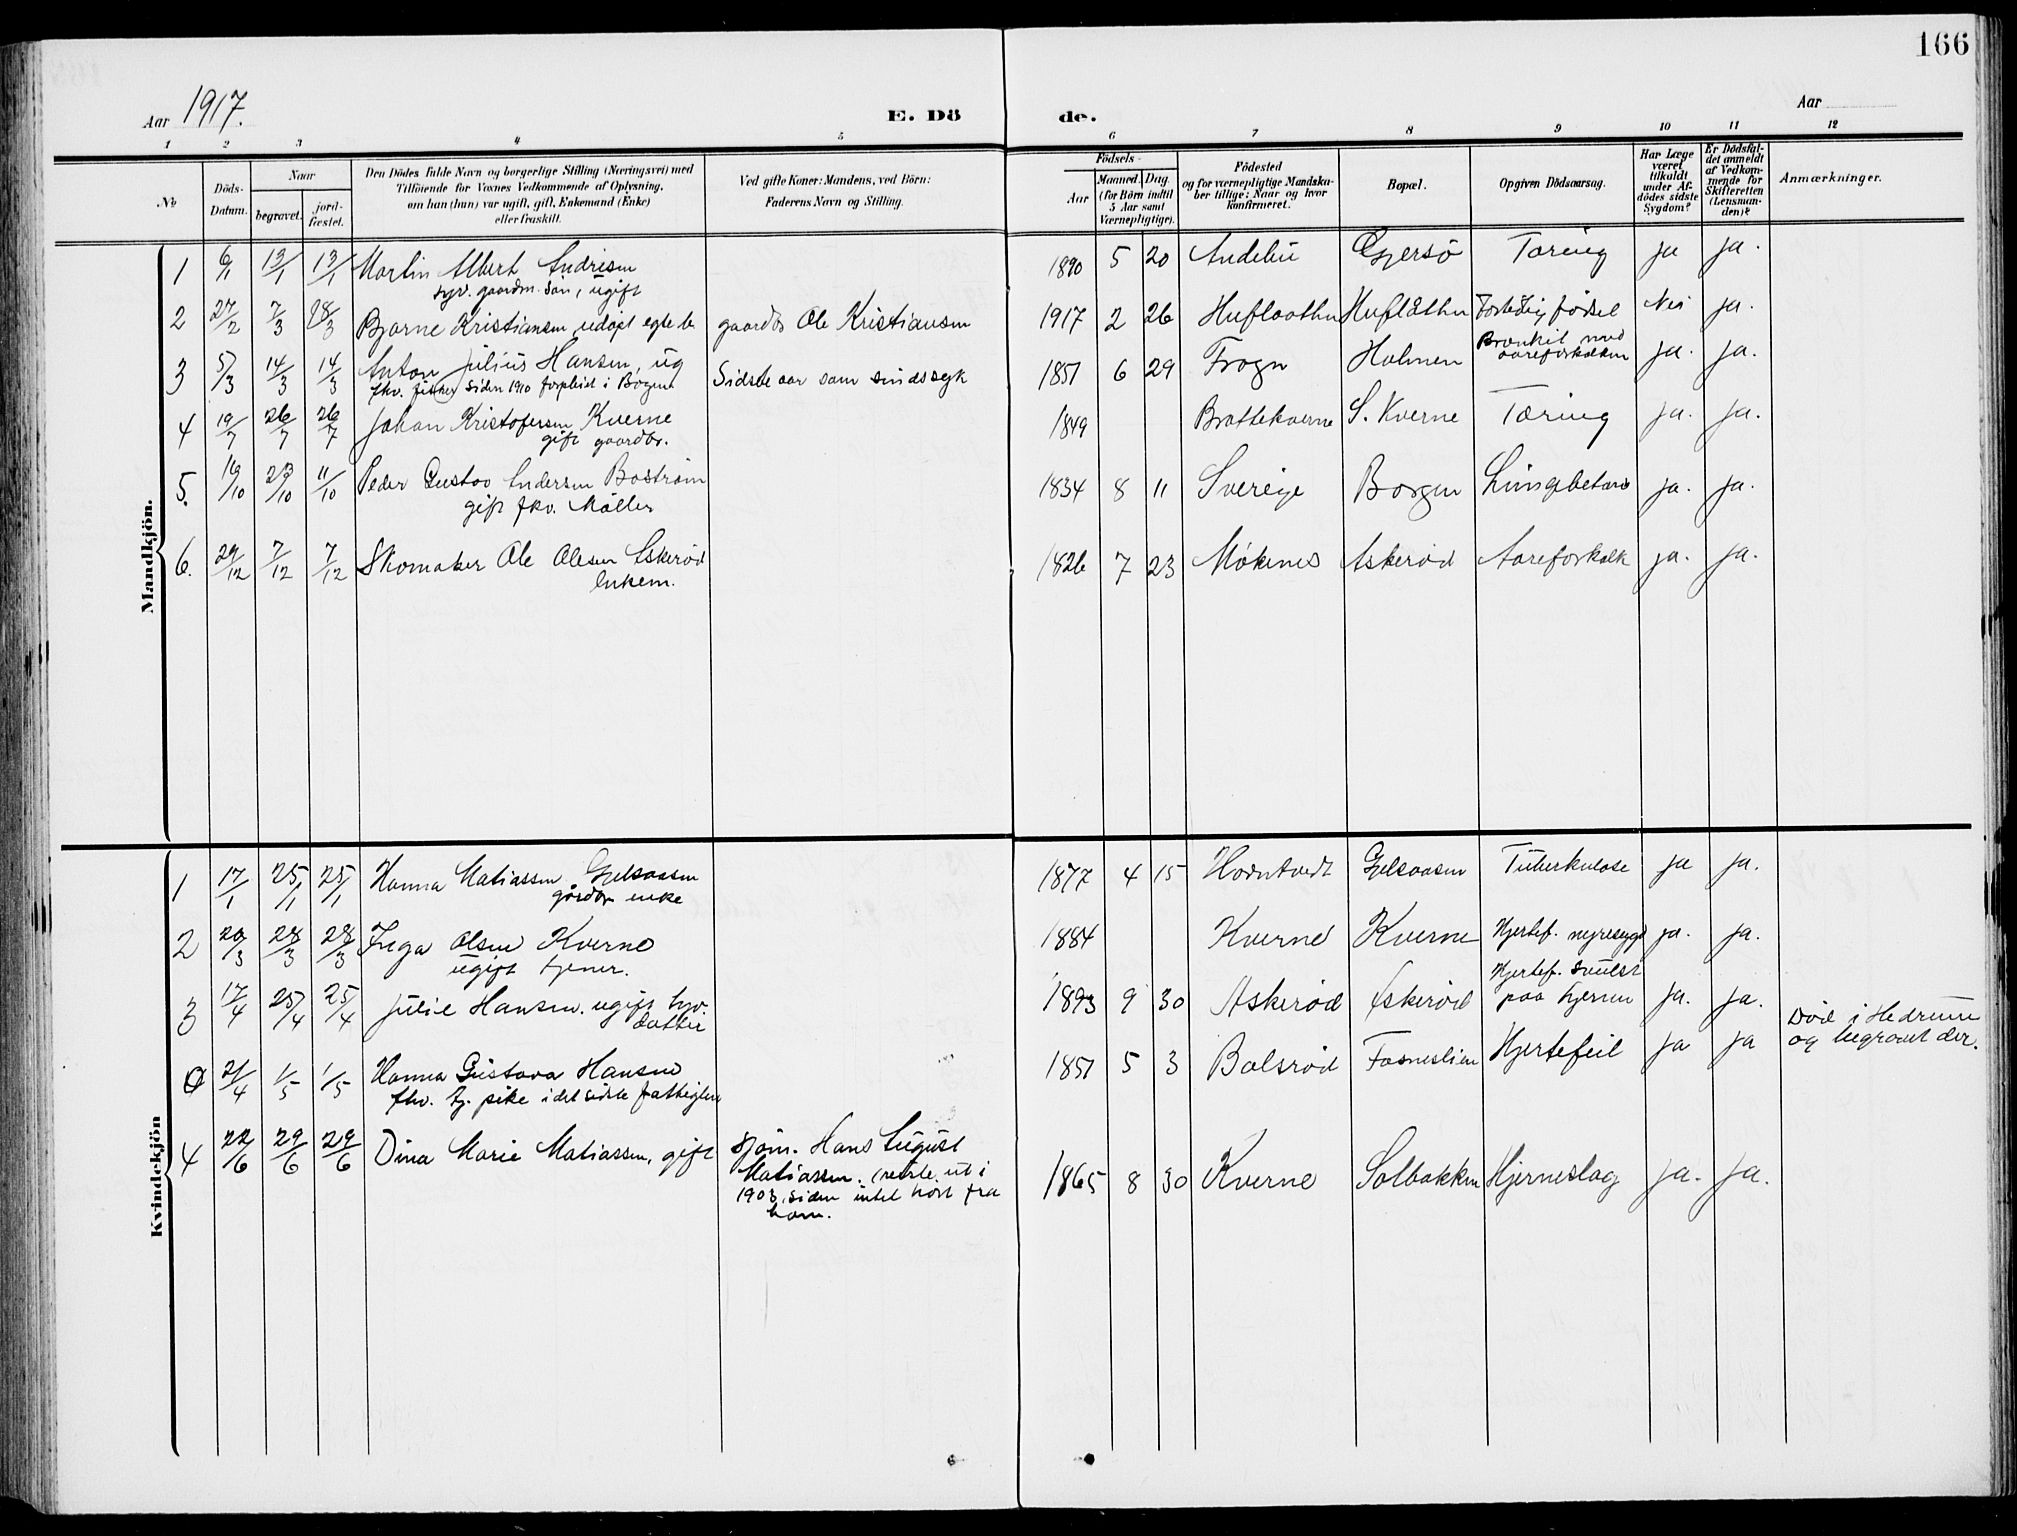 166
Aar 1917.
E. Dö
de.
Aar
1 2 3 4 5 6 7 8 9 10 11 12
No
Döds-
Datum.
Naar
begravet.
jord-
fæstet.
Den Dödes fulde Navn og borgerlige Stilling (Næringsvei) med
Tilföiende for Voxnes Vedkommende af Oplysning,
om han (hun) var ugift, gift, Enkemand (Enke)
eller fraskilt.
Ved gifte Koner: Mandens, ved Börn:
Faderens Navn og Stilling.
Födsels-
Aar
Maaned. Dag
(for Börn indtil
5 Aar samt
Værnepligtige).
Födested
og for værnepligtige Mandska-
ber tillige: Naar og hvor
konfirmeret.
Bopæl.
Opgiven Dödsaarsag.
Har Læge
været
tilkaldt
under Af-
dödes sidste
Sygdom?
Er Dödsfal-
det anmeldt
af Vedkom-
mende for
Skifteretten
(Lensman-
den)?
Anmærkninger.
Mandkjön.
1 6/1 13/1 13/1 Martin Albert Andresen 1890 5 20 Andebu Gjersö Tæring ja ja.
gaardm. sön, ugift
2 27/2 7/3 28/3 Bjarne Kristiansen udöpt egte b. gaardbr Ole Kristiansen 1917 2 26 Huflaathn Huflåthn fødsel Nei ja.
3 5/3 14/3 14/3 Anton Julius Hansen, ug Sidste aar som sindssyk 1851 6 29 Frogn Holmen Bronkit med
aareforkalken ja. ja.
fhv. fisker siden 1910 forpleiet i Borgen
4 19/7 26/7 26/7 Johan Kristofersen Kverne 1849 Brattekverne S. Kverne Tæring ja. ja.
gift gaardbr.
5. 16/10 23/10 11/10 Peder Gustav Andersen Boström 1834 8 11 Sverige Borgen Lungebetæn ja. ja.
gift fhv. Möller
6. 29/12 7/12 7/12 Skomaker Ole Olesen Askeröd 1826 7 23 Møkenes Askeröd Aareforkalk ja. ja.
Enkem.
Kvindekjön
1 17/1 25/1 25/1 Hanna Matiassen Gjelsaasen 1877 4 15 Horntvedt Gjelsaasen Tuberkulose ja ja.
gårdbr enke
2 20/3 28/3 28/3 Inga Olsen Kverne 1884 Kverne Kverne Hjertef. nyresyge ja. ja.
ugift tjener.
3 17/4 25/4 25/4 Julie Hansen. ugift 1893 9 30 Askeröd Askeröd Hjertef. svulst
paa hjernen ja. ja.
datter
0 21/4 1/5 1/5 Hanna Gustava Hansen 1851 5 3 Bålsrød Fosneslien Hjertefeil ja ja Död i Hedrum
og begravet der.
fhv. tj. pike i det sidste fattiglem
4 22/6 29/6 29/6 Dina Marie Matiassen, gift Sjöm. Hans August 1865 8 30 Kverne Solbakken Hjerneslag ja. ja.
Matiassen. (reiste ut i
1903, siden intet hört fra
ham.